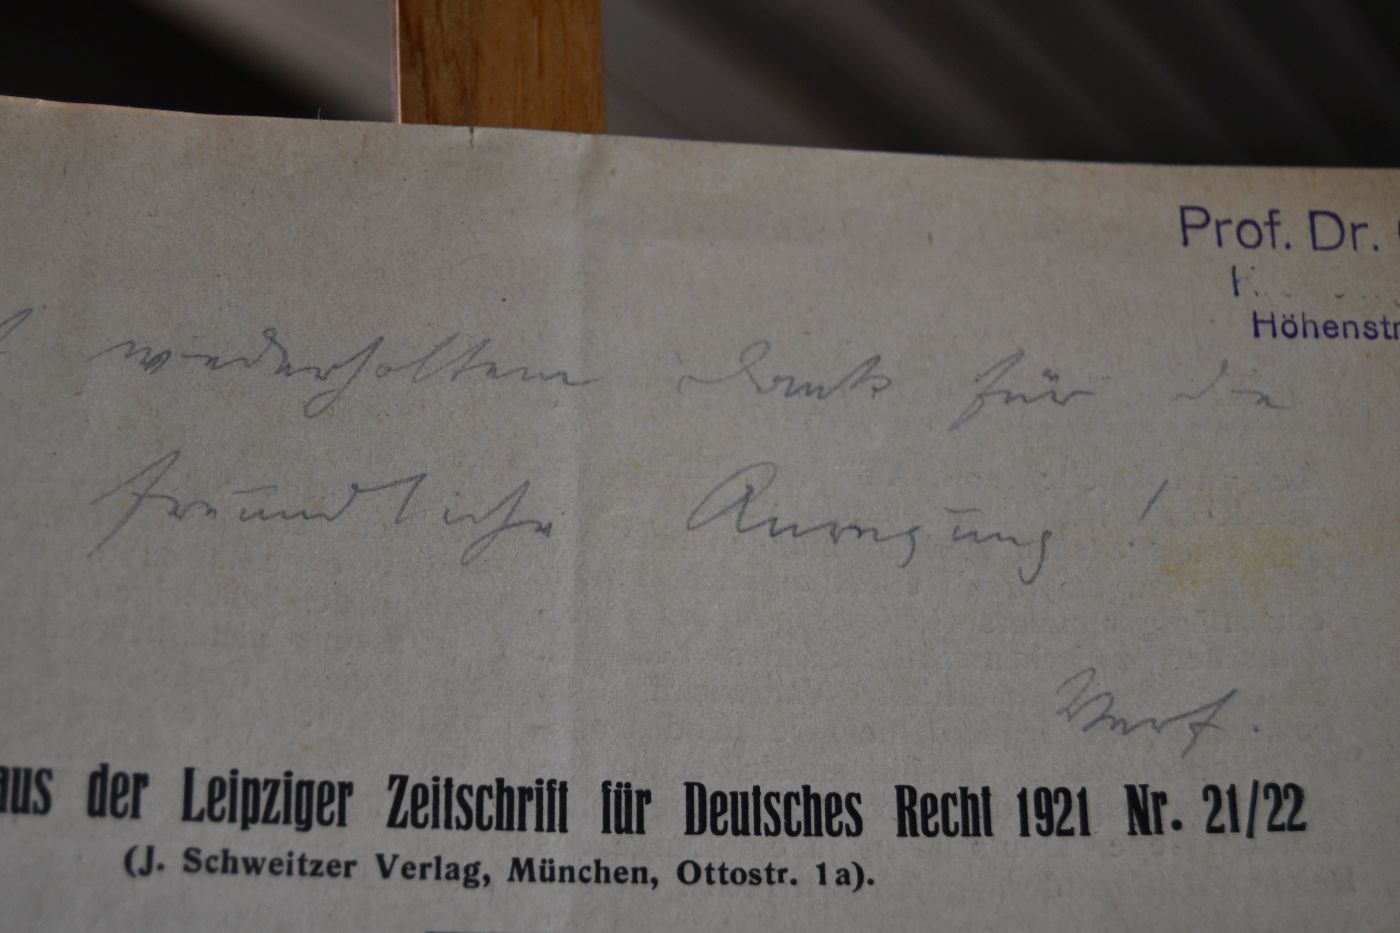 Prof. Dr.
Höhenstr
wiederholtem Dank für die
freundliche Anregung!
Verf.
aus der Leipziger Zeitschrift für Deutsches Recht 1921 Nr. 21/22
(J. Schweitzer Verlag, München, Ottostr. 1a).